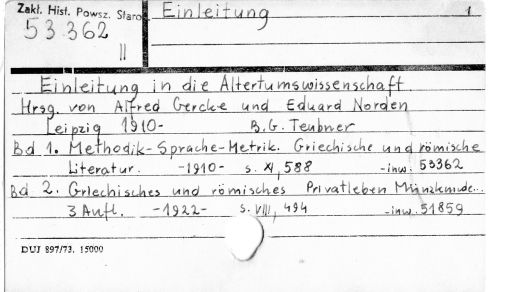 Zakł. Hist. Powsz. Staro
Einleitung
1
53.362
II
Einleitung in die Altertumswissenschaft
Hrsg. von Alfred Gercke und Eduard Norden
Leipzig 1910- B.G. Teubner
Bd 1. Methodik-Sprache-Metrik. Griechische und römische
Literatur. -1910- s. XI, 588 -inw. 53362
Bd 2. Griechisches und römisches Privatleben Münzkunde...
3 Aufl. -1922- s. VIII, 494 -inw. 51859
DUJ 897/73. 15000